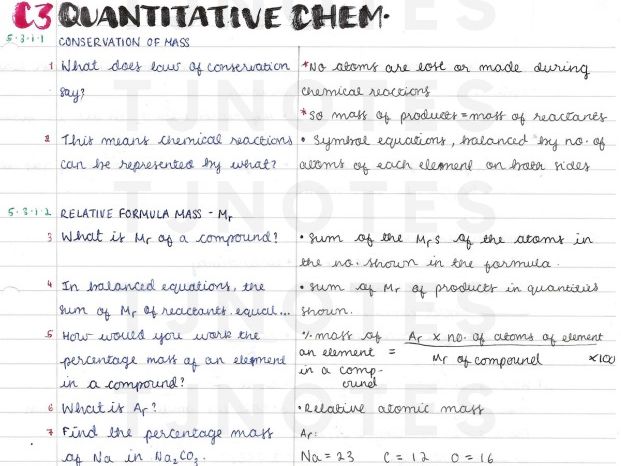 C3 QUANTITATIVE CHEM.
5.3.1.1 CONSERVATION OF MASS
1 What does law of conservation say?
* No atoms are lost or made during chemical reactions
* So mass of products = mass of reactants
2 This means chemical reactions can be represented by what?
• Symbol equations, balanced by no. of atoms of each element on both sides
5.3.1.2 RELATIVE FORMULA MASS - Mr
3 What is Mr of a compound?
• Sum of the MrS of the atoms in the no. shown in the formula.
4 In balanced equations, the sum of Mr of reactants equal...
• sum of Mr of products in quantities shown.
5 How would you work the percentage mass of an element in a compound?
% mass of an element in a compound = Ar x no. of atoms of element / Mr of compound x100
6 What is Ar?
• Relative atomic mass
7 Find the percentage mass of Na in Na2CO3.
Ar:
Na = 23 C = 12 O = 16
TJNOTES
TJNOTES
TJNOTES
TJNOTES